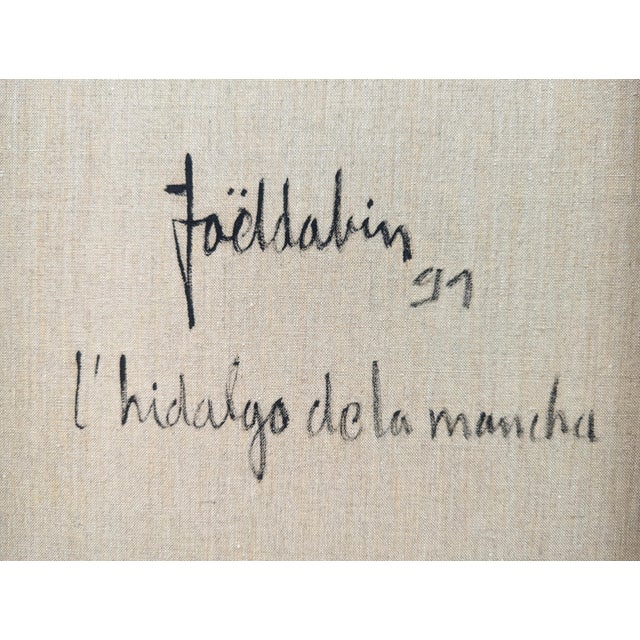 Joëldabin
91
l'hidalgo de la mancha